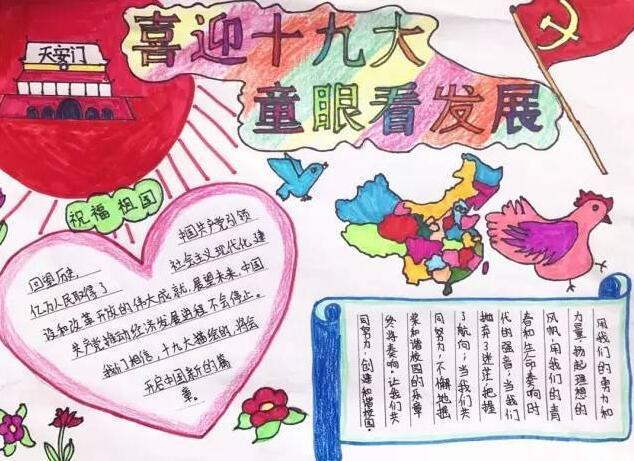 喜迎十九大
童眼看发展
天安门
祝福祖国
回望历史，
中国共产党引领
亿万人民取得了
社会主义现代化建
设和改革开放的伟大成就，展望未来，中国
共产党推动经济发展的进程不会停止。
我们相信，十九大描绘的，将会
开启中国新的篇
章。
用我们的勇力和
力量，扬起理想的
风帆，用我们的青
春和生命奏响时
代的强音，当我们
抛弃了迷茫，把握
了航向；当我们共
同努力，不懈地
荣和谐校园的乐章
终将奏响。让我们共
同努力，创造和谐校园。